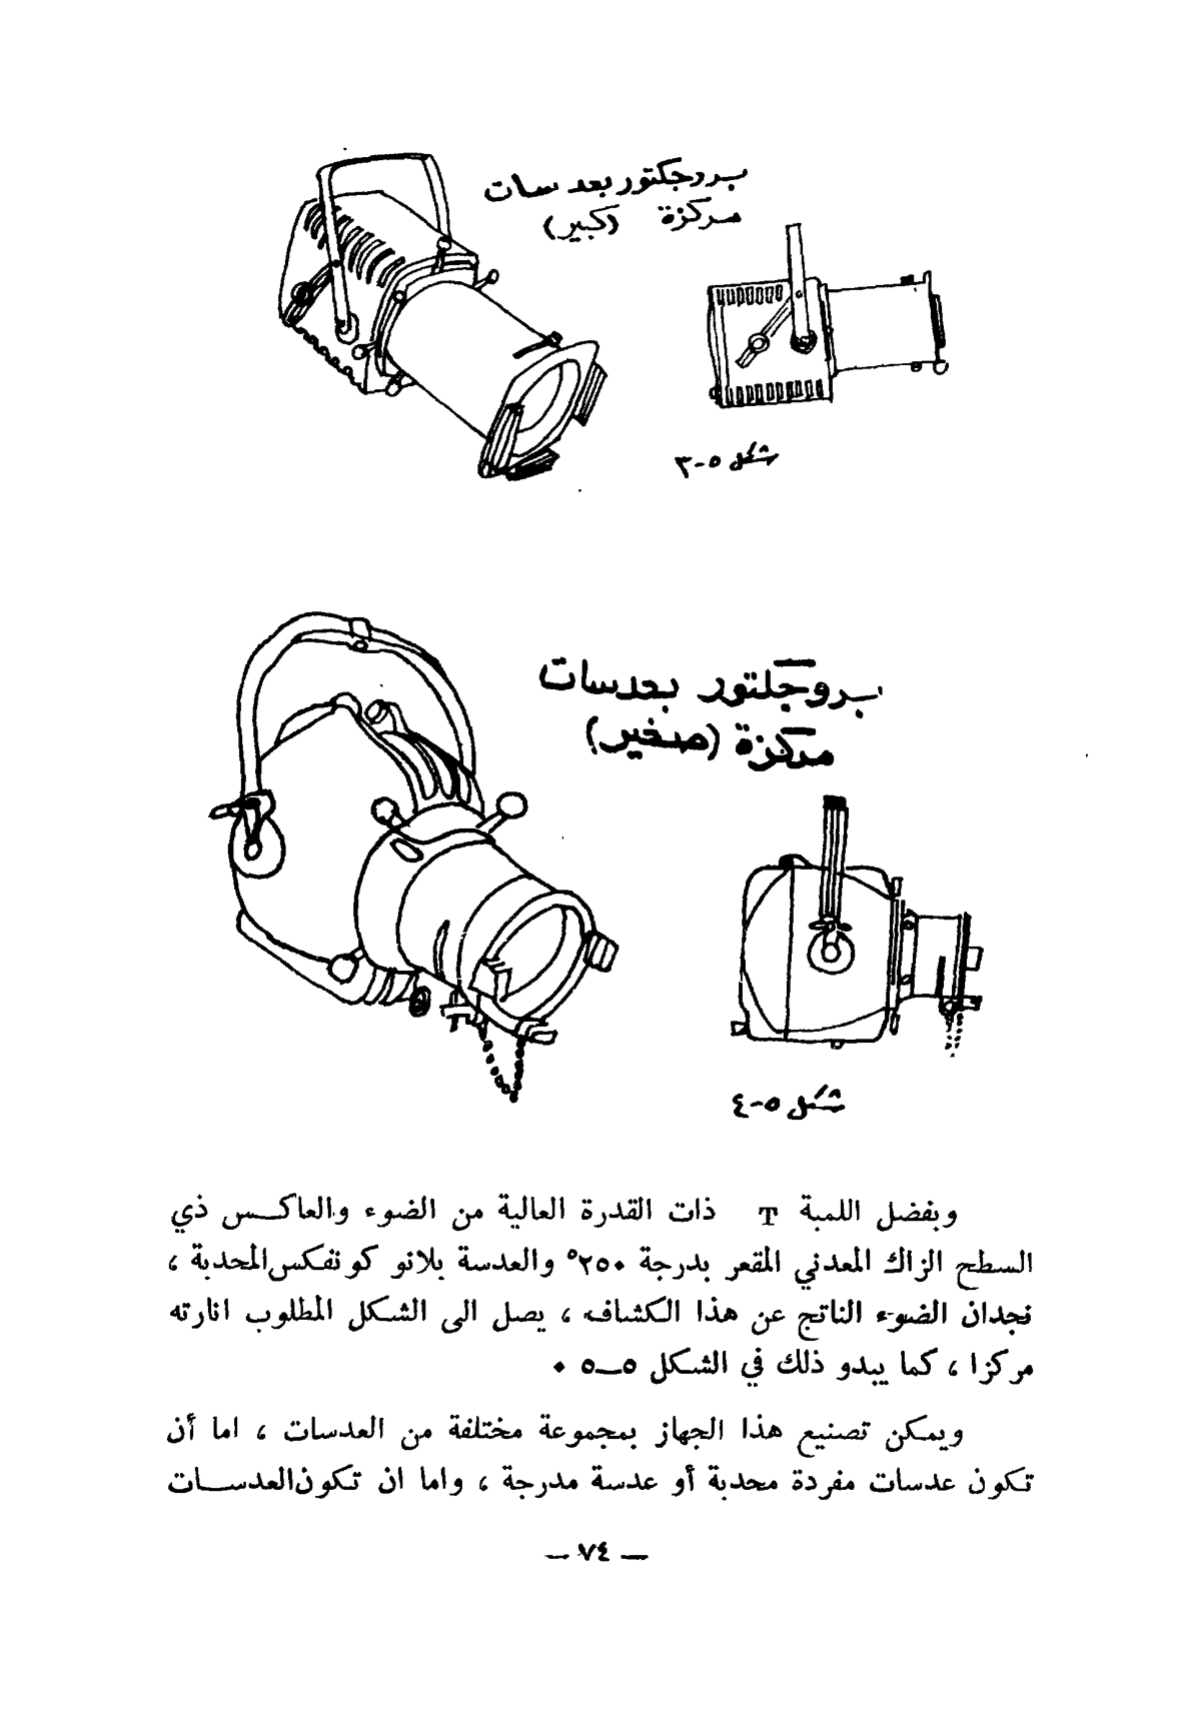 بروجكتور بعدسات
مركزة (كبير)
شكل ٥-٣
بروجكتور بعدسات
مركزة (صغير)
شكل ٥-٤
وبفضل اللمبة T ذات القدرة العالية من الضوء والعاكس ذي
السطح الزاك المعدني المقعر بدرجة ٢٥٠° والعدسة بلانو كونفكس المحدبة ،
نجدان الضوء الناتج عن هذا الكشاف ، يصل الى الشكل المطلوب انارته
مركزا ، كما يبدو ذلك في الشكل ٥—٥ ٠
ويمكن تصنيع هذا الجهاز بمجموعة مختلفة من العدسات ، اما أن
تكون عدسات مفردة محدبة أو عدسة مدرجة ، واما ان تكون العدسات
— ٧٤ —